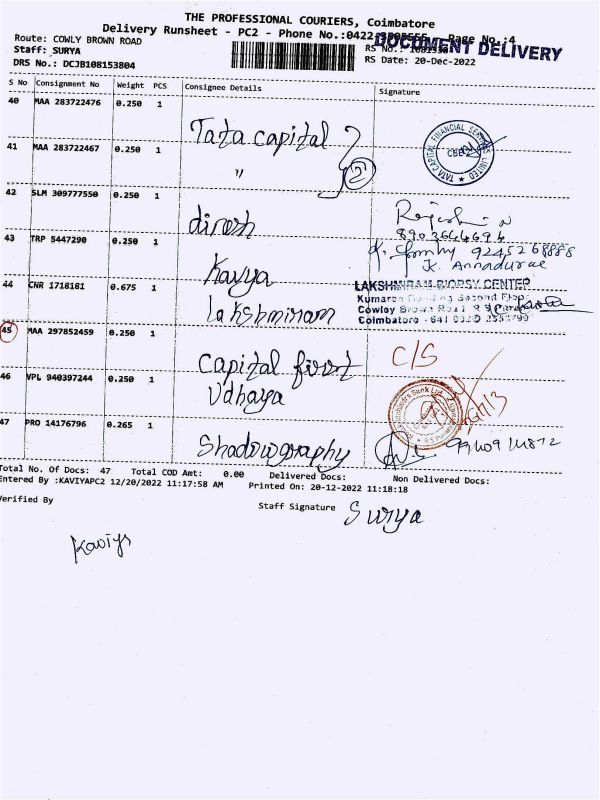 THE PROFESSIONAL COURIERS, Coimbatore
Delivery Runsheet - PC2 - Phone No.:0422- Page No.:4
DOCUMENT DELIVERY
Route: COWLY BROWN ROAD
Staff: SURYA
RS No.:
DRS No.: DCJB108153804
RS Date: 20-Dec-2022
S No Consignment No Weight PCS Consignee Details Signature
40 MAA 283722476 0.250 1
Tata capital
TATA CAPITAL FINANCIAL SERVICES LIMITED
CBE
41 MAA 283722467 0.250 1
" 2
42 SLM 309777550 0.250 1
dinesh
8903644694
43 TRP 5447290 0.250 1
Kavya
K. Annadurae
44 CNR 1718181 0.675 1
Lakshmiram
LAKSHMIRAM BIOPSY CENTER
45 MAA 297852459 0.250 1
Capital first C/S
46 VPL 940397244 0.250 1
Udhaya
47 PRO 14176796 0.265 1
Shadowgraphy
Total No. Of Docs: 47 Total COD Amt: 0.00 Delivered Docs: Non Delivered Docs:
Entered By :KAVIYAPC2 12/20/2022 11:17:58 AM Printed On: 20-12-2022 11:18:18
Verified By
Staff Signature Surya
Kaviya